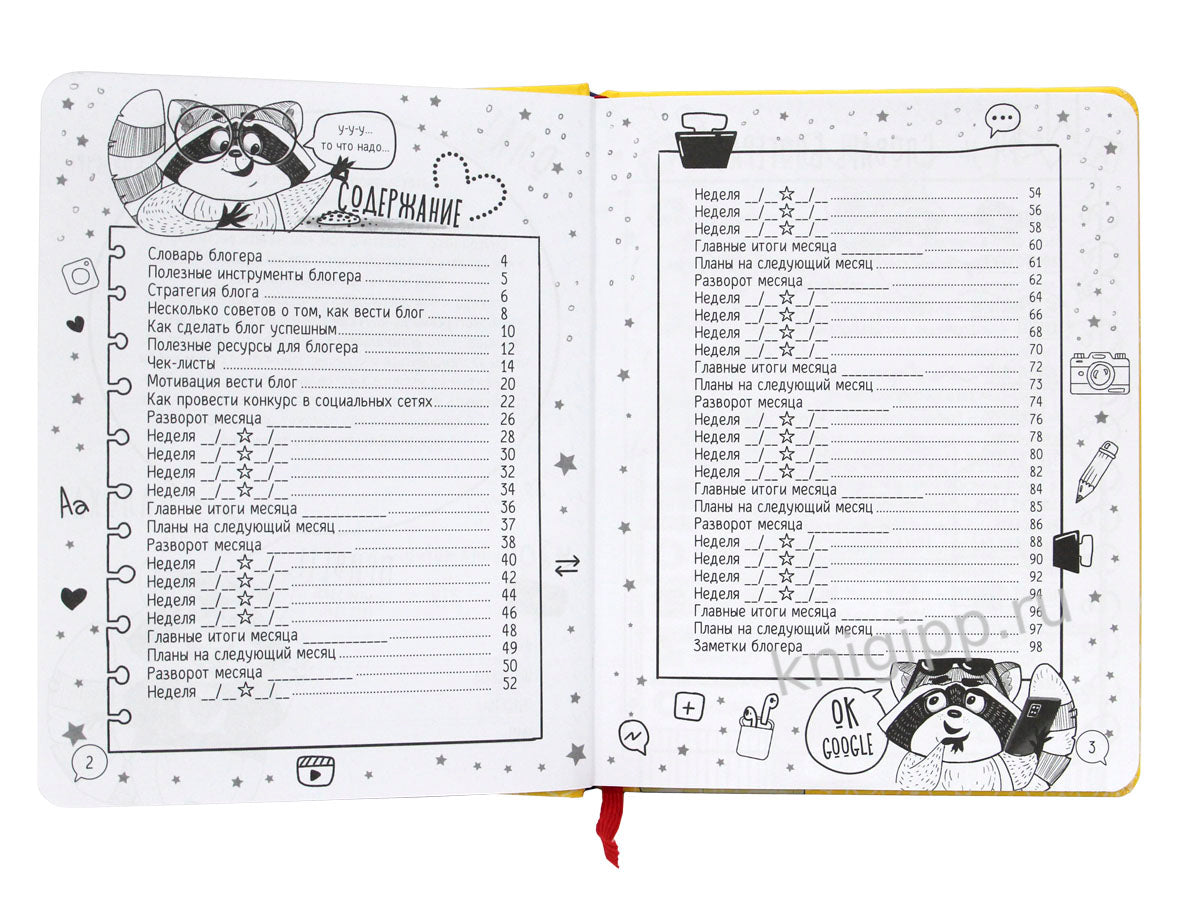 у-у-у...
то что надо...
СОДЕРЖАНИЕ
Словарь блогера 4
Полезные инструменты блогера 5
Стратегия блога 6
Несколько советов о том, как вести блог 8
Как сделать блог успешным 10
Полезные ресурсы для блогера 12
Чек-листы 14
Мотивация вести блог 20
Как провести конкурс в социальных сетях 22
Разворот месяца ____________ 26
Неделя __/__☆__/__ 28
Неделя __/__☆__/__ 30
Неделя __/__☆__/__ 32
Неделя __/__☆__/__ 34
Главные итоги месяца ____________ 36
Планы на следующий месяц 37
Разворот месяца ____________ 38
Неделя __/__☆__/__ 40
Неделя __/__☆__/__ 42
Неделя __/__☆__/__ 44
Неделя __/__☆__/__ 46
Главные итоги месяца ____________ 48
Планы на следующий месяц 49
Разворот месяца ____________ 50
Неделя __/__☆__/__ 52
Aa
2
Неделя __/__☆__/__ 54
Неделя __/__☆__/__ 56
Неделя __/__☆__/__ 58
Главные итоги месяца ____________ 60
Планы на следующий месяц 61
Разворот месяца ____________ 62
Неделя __/__☆__/__ 64
Неделя __/__☆__/__ 66
Неделя __/__☆__/__ 68
Неделя __/__☆__/__ 70
Главные итоги месяца ____________ 72
Планы на следующий месяц 73
Разворот месяца ____________ 74
Неделя __/__☆__/__ 76
Неделя __/__☆__/__ 78
Неделя __/__☆__/__ 80
Неделя __/__☆__/__ 82
Главные итоги месяца ____________ 84
Планы на следующий месяц 85
Разворот месяца ____________ 86
Неделя __/__☆__/__ 88
Неделя __/__☆__/__ 90
Неделя __/__☆__/__ 92
Неделя __/__☆__/__ 94
Главные итоги месяца ____________ 96
Планы на следующий месяц 97
Заметки блогера 98
knigipp.ru
OK
GOOGLE
3